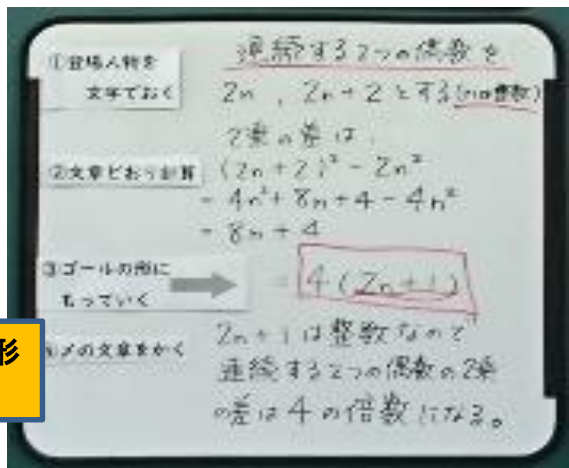 ①登場人物を
文字でおく
連続する2つの偶数を
2n , 2n+2 とする(nは整数)
2乗の差は、
②文章どおり計算
(2n+2)² - 2n²
= 4n²+8n+4-4n²
= 8n+4
③ゴールの形に
もっていく
= 4(2n+1)
形
④〆の文章をかく
2n+1は整数なので
連続する2つの偶数の2乗
の差は4の倍数になる。